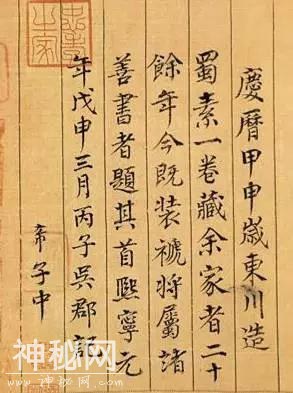 慶曆甲申歲東川造
蜀素一卷藏余家者二十
餘年今既装褫將屬諸
善書者題其首熙寧元
年戊申三月丙子吳郡記
子中
神秘网
WWW.SHENMI.COM